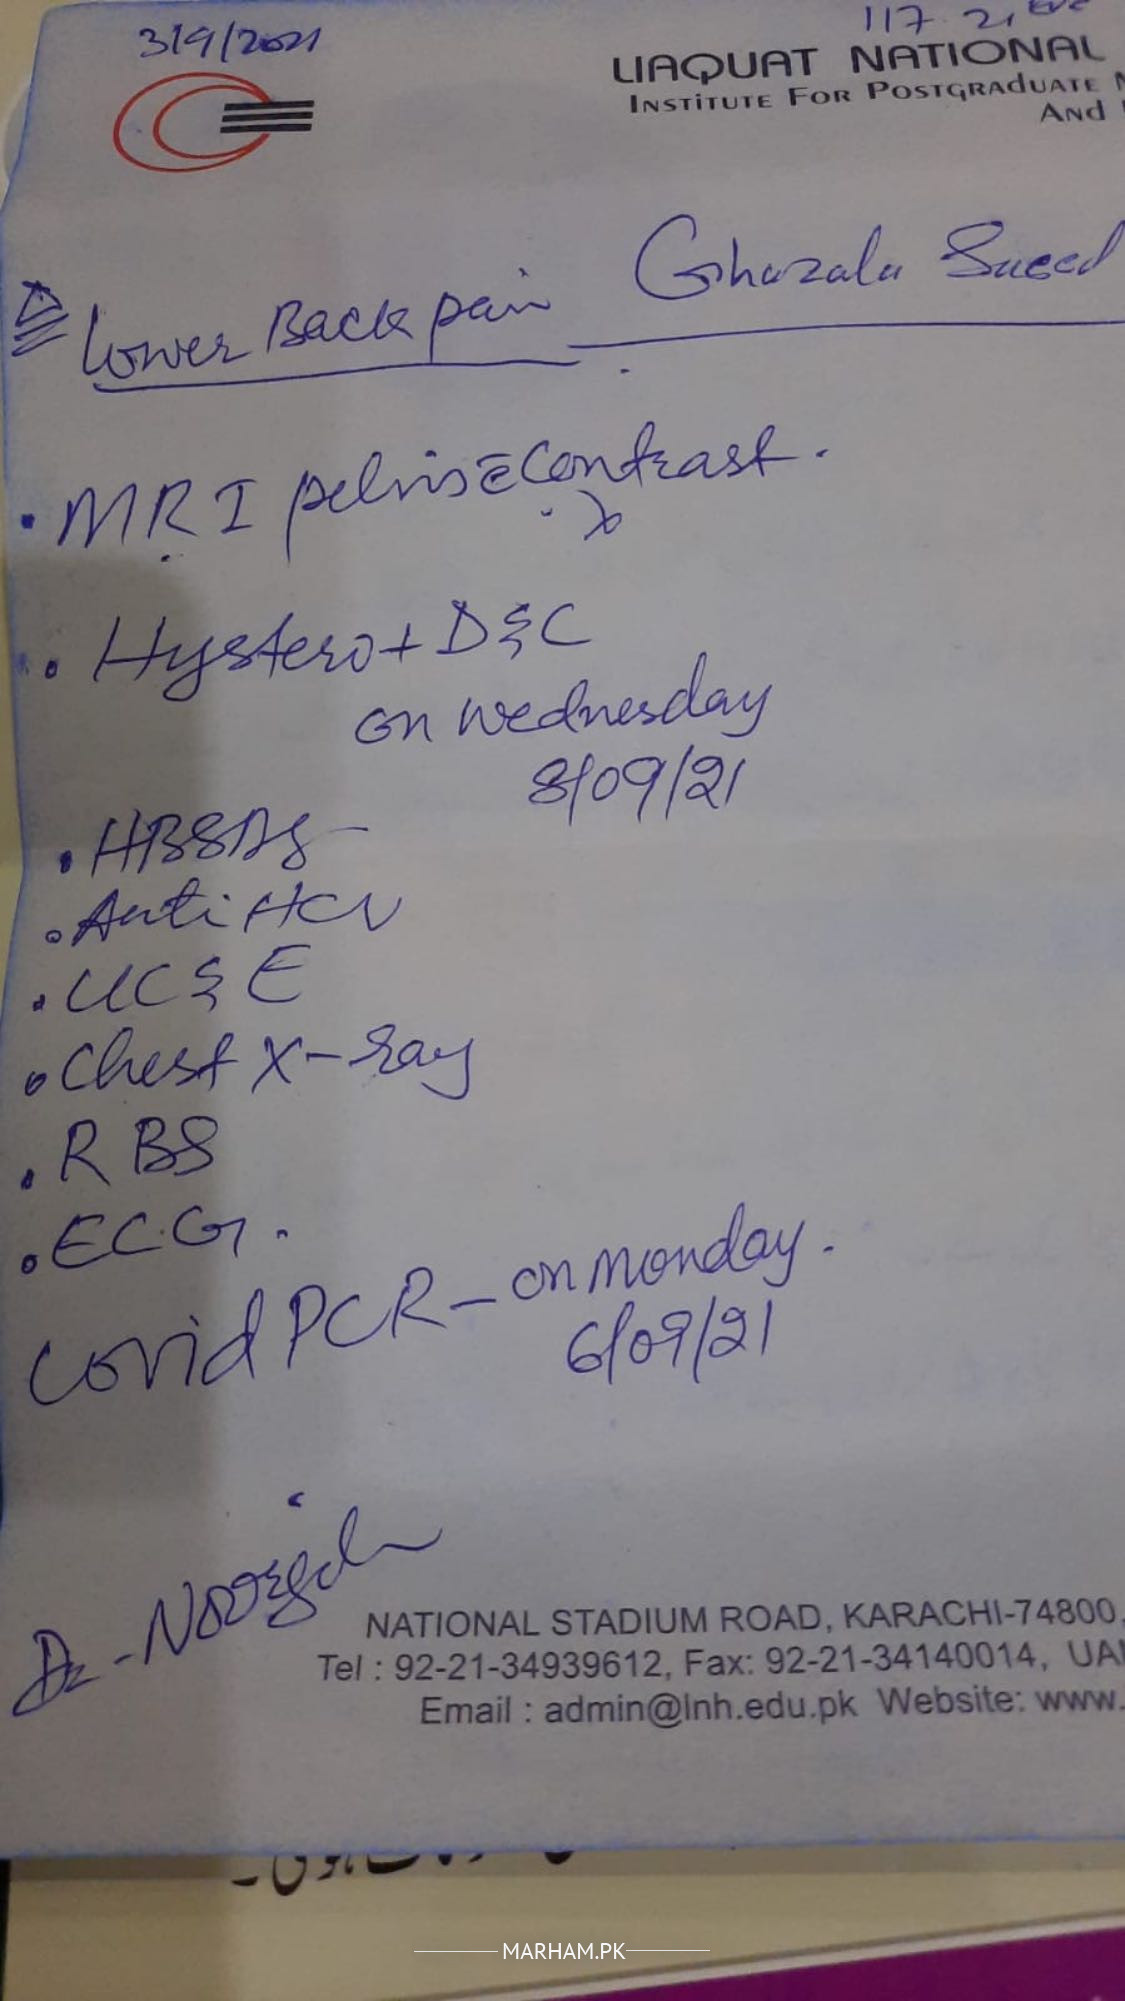 3/9/2021
LIAQUAT NATIONAL
INSTITUTE FOR POSTGRADUATE
AND
Ghazala Saeed
Lower Back pain
. MRI pelvis c̄ Contrast.
. Hystero + D & C
on wednesday
8/09/21
. HBSAg -
. Anti HCV
. UC & E
. Chest X-ray
. RBS
. ECG.
Covid PCR - on monday.
6/09/21
NATIONAL STADIUM ROAD, KARACHI-74800,
Tel : 92-21-34939612, Fax: 92-21-34140014,
Email : admin@lnh.edu.pk Website: www.
MARHAM.PK